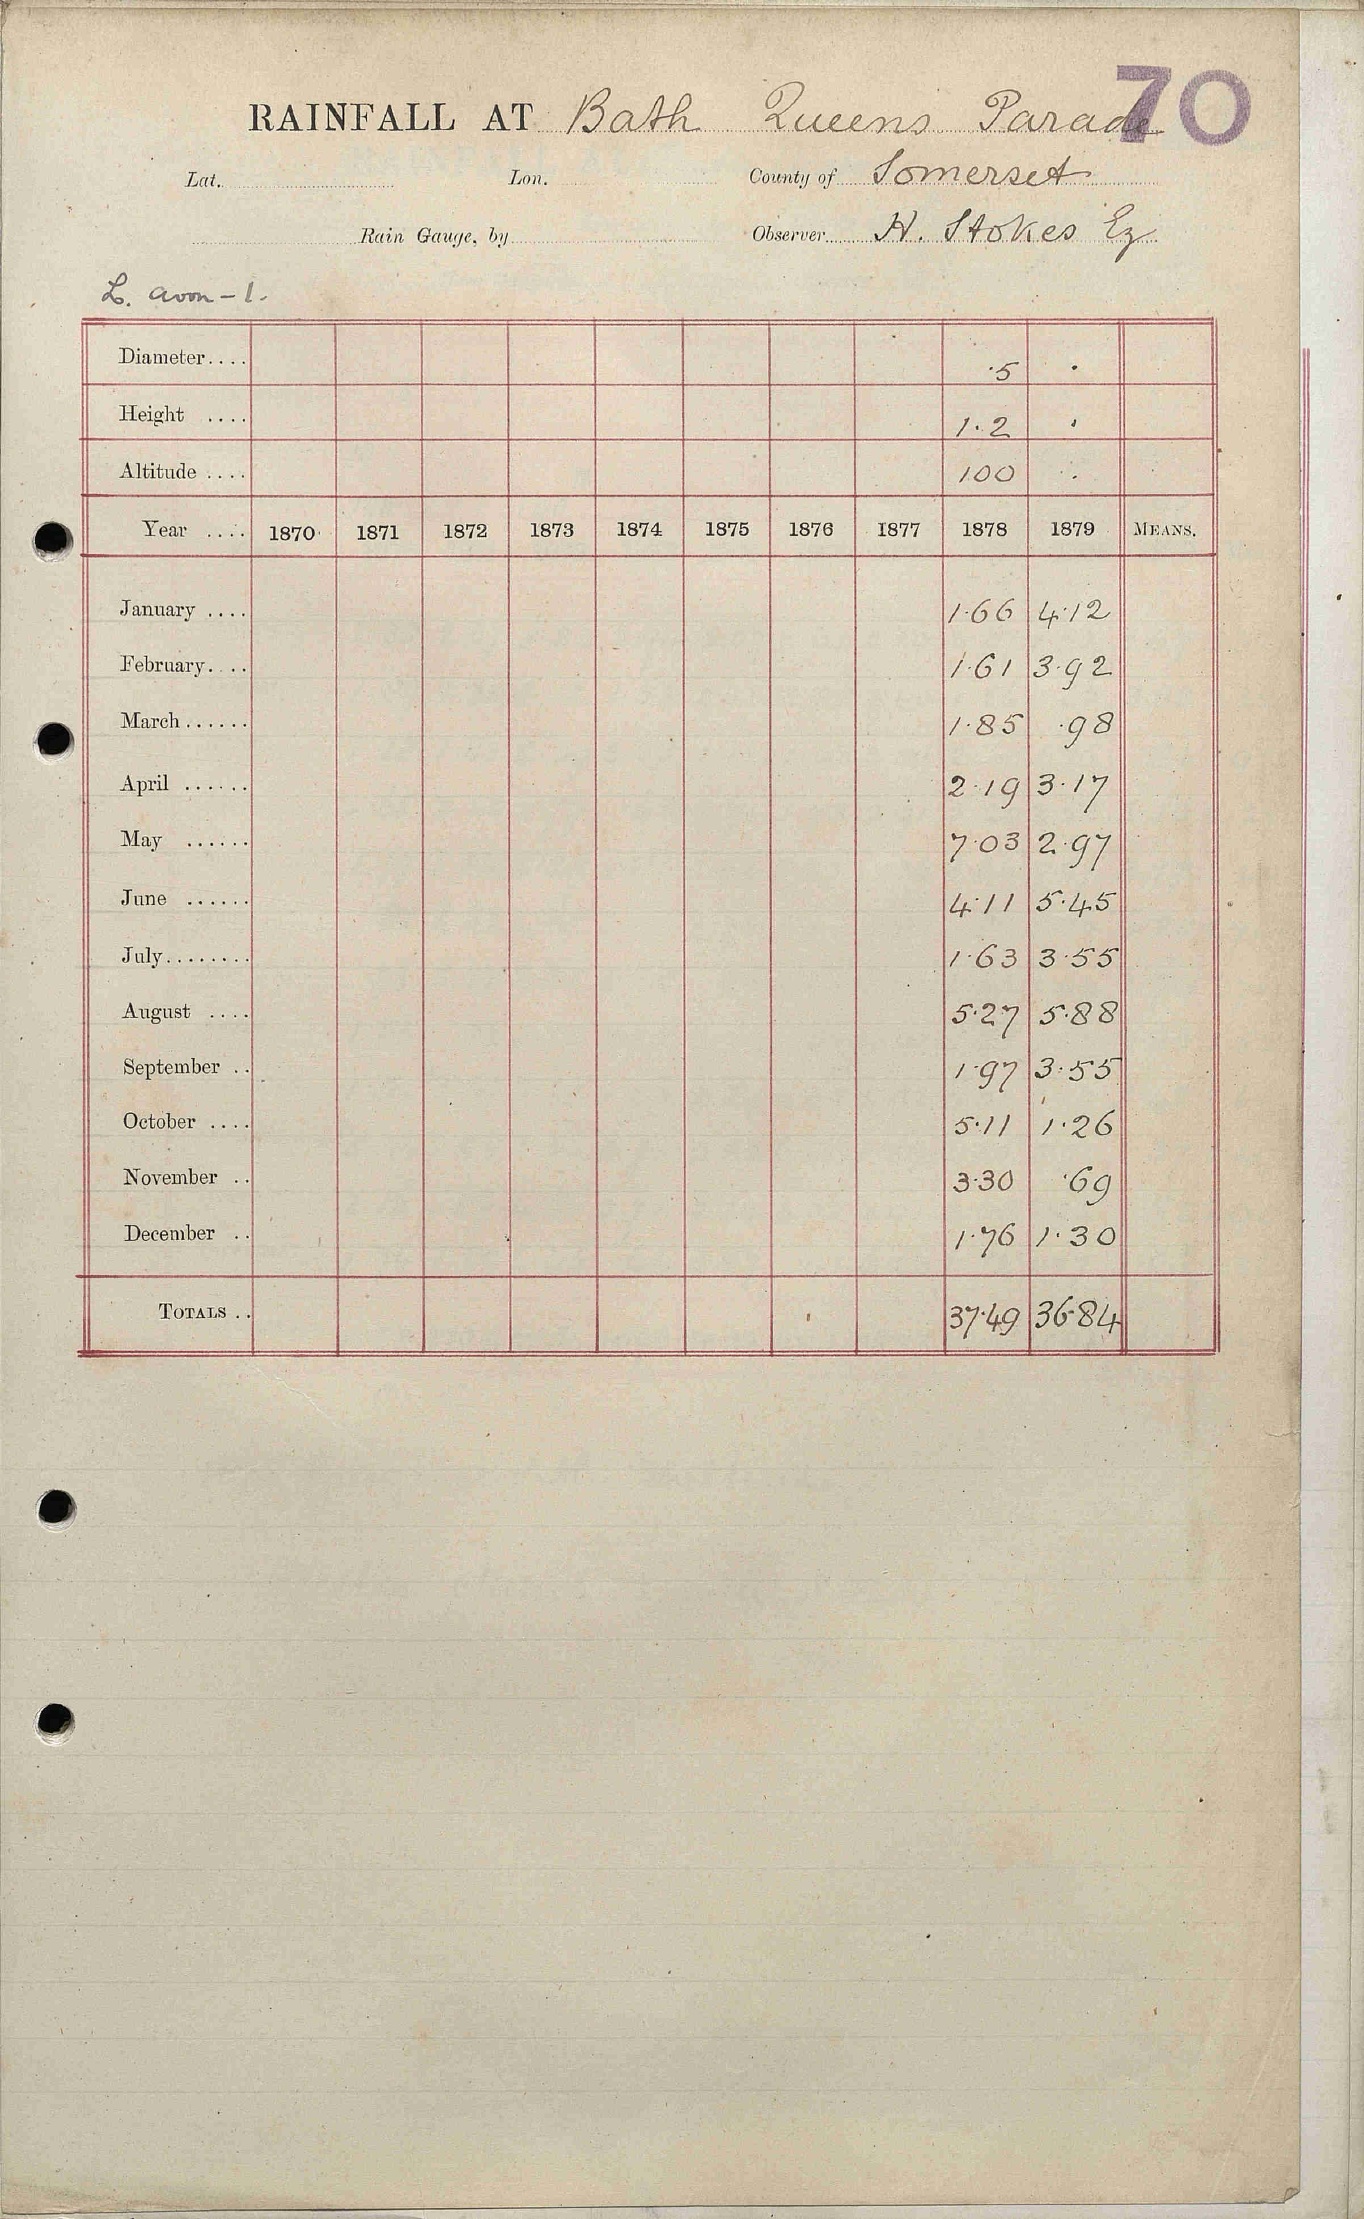 70
RAINFALL AT Bath Queens Parade
Lat. Lon. County of Somerset
Rain Gauge, by Observer H. Stokes Eq
L. Avon - 1.
Diameter.... ·5 ·
Height .... 1·2 ·
Altitude .... 100 ·
Year .... 1870 1871 1872 1873 1874 1875 1876 1877 1878 1879 MEANS.
January .... 1·66 4·12
February.... 1·61 3·92
March...... 1·85 ·98
April ...... 2·19 3·17
May ...... 7·03 2·97
June ...... 4·11 5·45
July........ 1·63 3·55
August .... 5·27 5·88
September .. 1·97 3·55
October .... 5·11 1·26
November .. 3·30 ·69
December .. 1·76 1·30
TOTALS .. 37·49 36·84